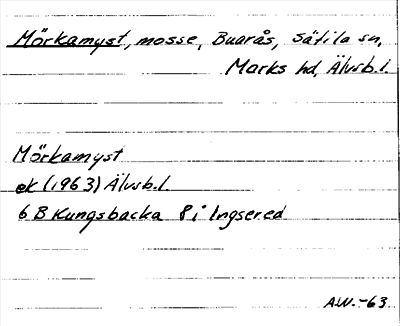 Mörkamyst, mosse, Buarås, Sätila sn,
Marks hd, Älvsb.l.
Mörkamyst
ek (1963) Älvsb.l.
6 B Kungsbacka 8 i Ingsered
A.W. -63